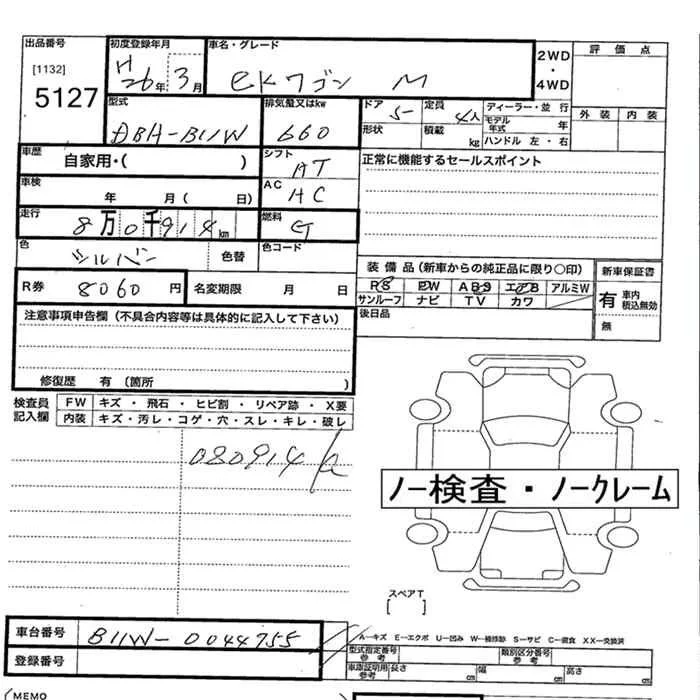 出品番号 初度登録年月 車名・グレード 2WD・4WD 評価点
[1132] H26年3月 eKワゴン M
5127 外装 内装
型式 排気量又はkw ドア 5 定員 4人 ディーラー・並行
DBA-B11W 660 形状 積載 kg モデル年式 年
ハンドル 左・右
車歴 自家用・( ) シフト AT 正常に機能するセールスポイント
車検 年 月( 日) AC AC
走行 8万0千914km 燃料 G
色 シルバー 色替 色コード
装備品(新車からの純正品に限り○印) 新車保証書
R券 8060円 名変期限 月 日 PS PW ABS エアB アルミW
サンルーフ ナビ TV カワ 有 車内積込無効
後日品 無
注意事項申告欄(不具合内容等は具体的に記入して下さい)
修復歴 有(箇所 )
検査員記入欄 FW キズ・飛石・ヒビ割・リペア跡・X要
内装 キズ・汚レ・コゲ・穴・スレ・キレ・破レ
080914
ノー検査・ノークレーム
スペアT
[ ]
車台番号 B11W-0044755
A-キズ E-エクボ U-凹み W-補修跡 S-サビ C-腐食 XX-交換済
登録番号 型式指定番号 参考 類別区分番号 参考
車庫証明用参考 長さ cm 幅 cm 高さ cm
(MEMO